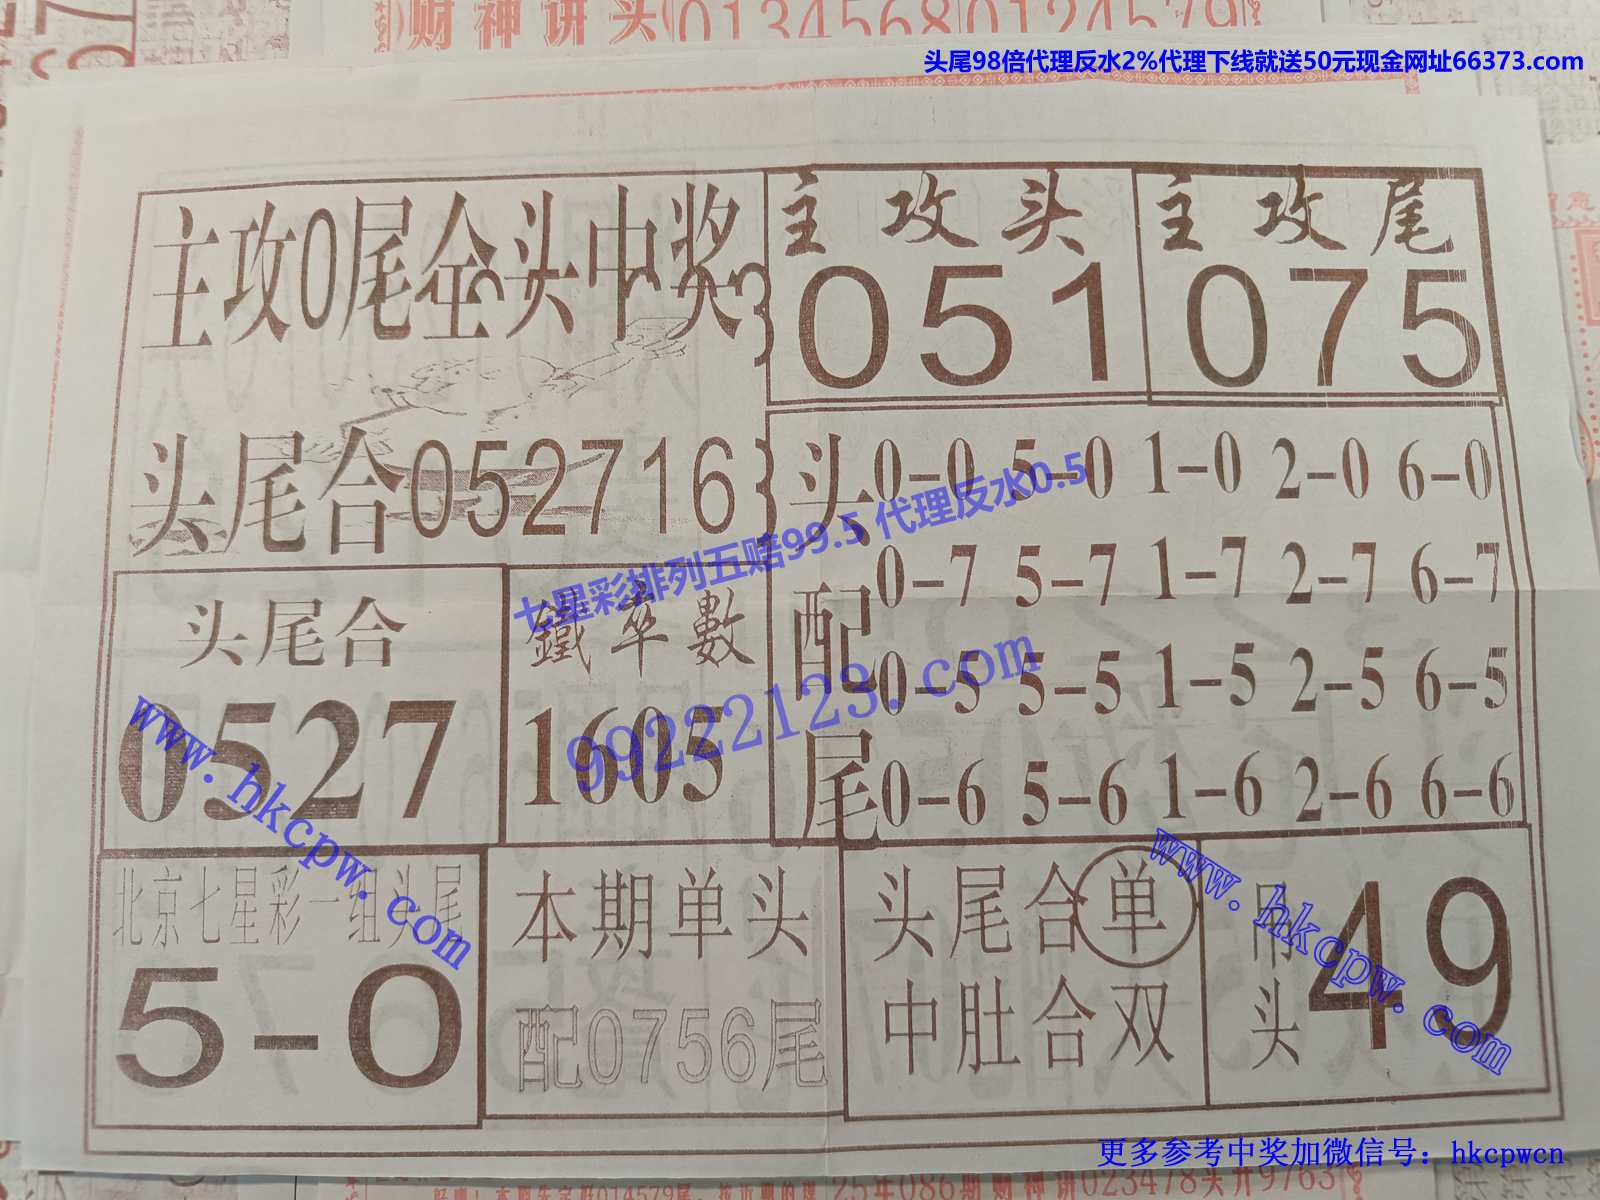 财神讲头0134568 0124579
头尾98倍代理反水2%代理下线就送50元现金网址66373.com
主攻0尾全头中奖
主攻头
051
主攻尾
075
头尾合052716
头配尾
0-0 5-0 1-0 2-0 6-0
0-7 5-7 1-7 2-7 6-7
0-5 5-5 1-5 2-5 6-5
0-6 5-6 1-6 2-6 6-6
七星彩排列五赔99.5 代理反水0.5
99222123.com
头尾合
0527
鐵率數
1605
www.hkcpw.com
北京七星彩一组头尾
5-0
本期单头
配0756尾
头尾合单
中肚合双
吊头
49
www.hkcpw.com
更多参考中奖加微信号：hkcpwcn
25年086期财神讲023478头开9763